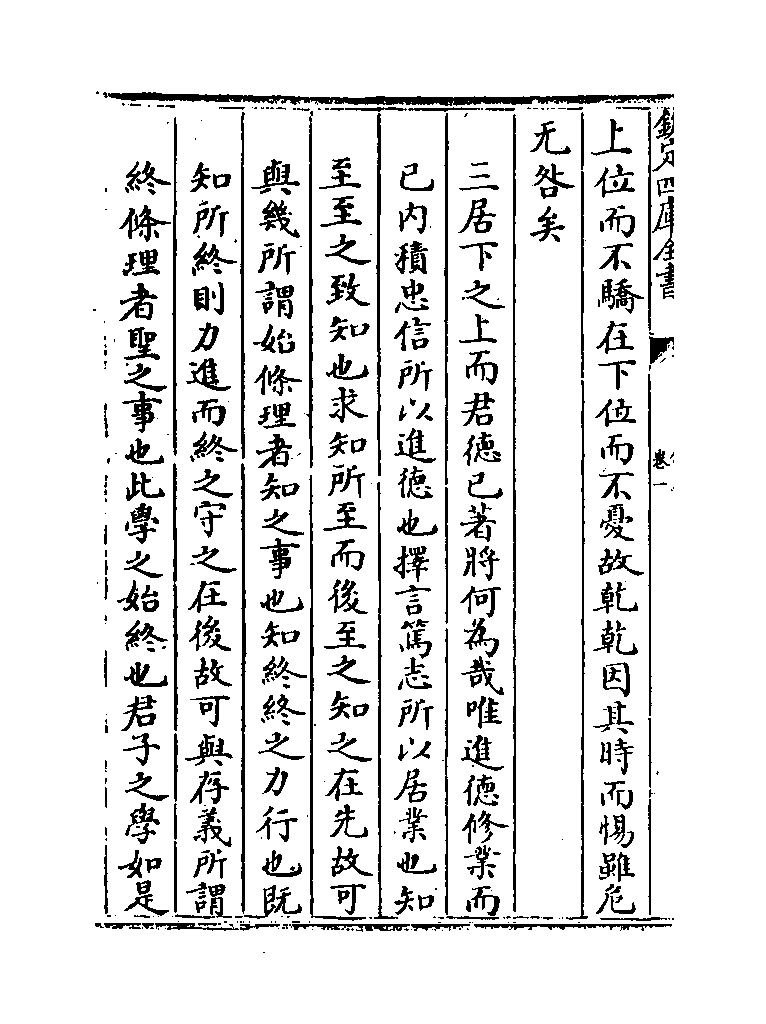 欽定四庫全書
卷一
上位而不驕在下位而不憂故乾乾因其時而惕雖危
无咎矣
三居下之上而君德已著將何為哉唯進德修業而
已内積忠信所以進德也擇言篤志所以居業也知
至至之致知也求知所至而後至之知之在先故可
與幾所謂始條理者知之事也知終終之力行也既
知所終則力進而終之守之在後故可與存義所謂
終條理者聖之事也此學之始終也君子之學如是